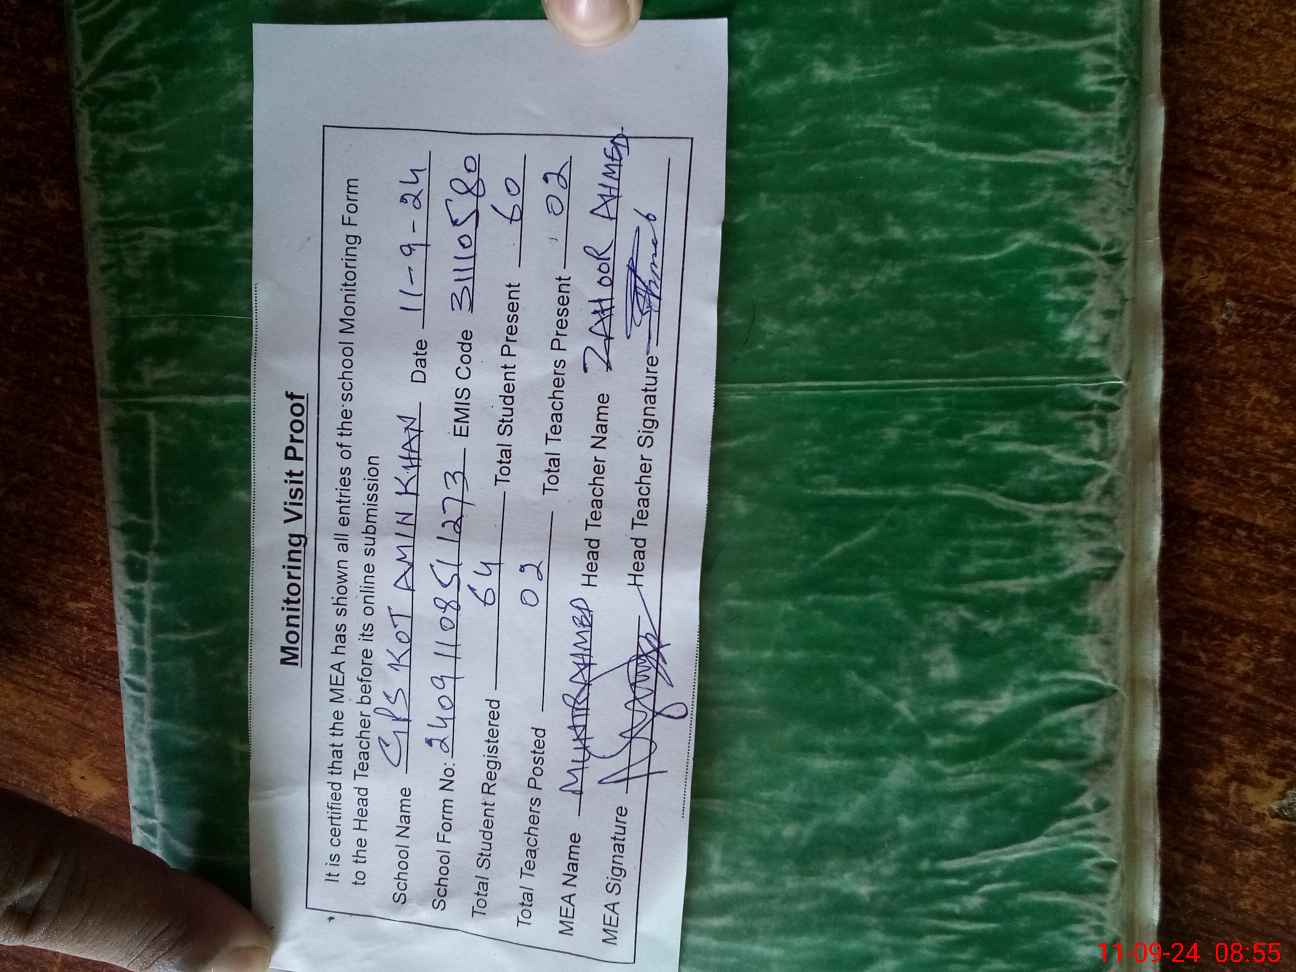 Monitoring Visit Proof
It is certified that the MEA has shown all entries of the school Monitoring Form
to the Head Teacher before its online submission
School Name GPS KOT AMIN KHAN Date 11-9-24
School Form No: 2409110851273 EMIS Code 31110580
Total Student Registered 64 Total Student Present 60
Total Teachers Posted 02 Total Teachers Present 02
MEA Name Head Teacher Name ZAHOOR AHMED
MEA Signature Head Teacher Signature
11-09-24 08:55